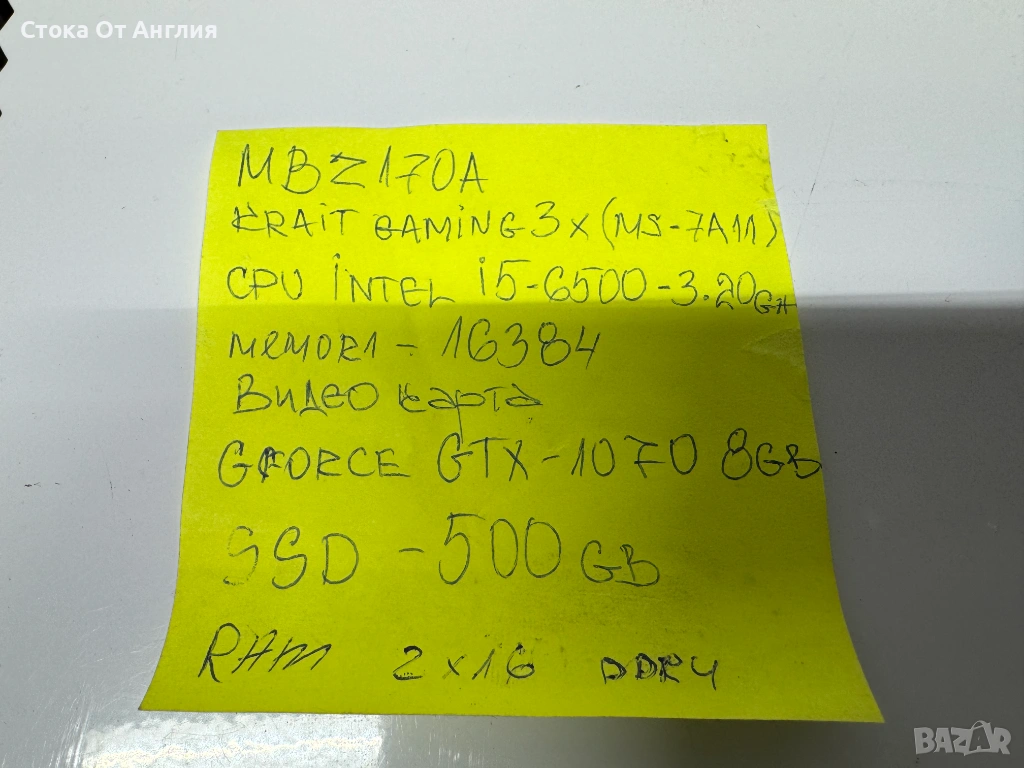 Стока От Англия
MB Z170A
KRAIT GAMING 3x (MS-7A11)
CPU INTEL i5-6500-3.20GH
MEMORI - 16384
ВИДЕО карта
GFORCE GTX-1070 8GB
SSD - 500 GB
RAM 2x16 DDR4
BAZAR